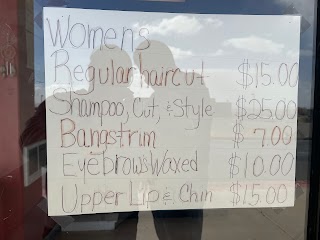 Women's
Regular haircut $15.00
Shampoo, Cut, & Style $25.00
Bangstrim $ 7.00
Eyebrows Waxed $10.00
Upper Lip & Chin $15.00